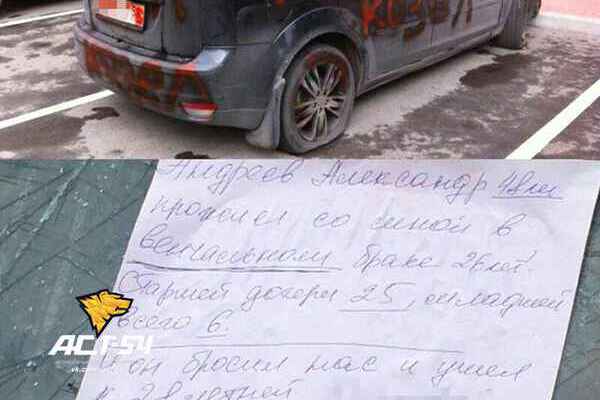 КОЗЕЛ
КОЗЕЛ
Андреев Александр 48 лет
прожил со мной в
венчальном браке 26 лет.
Старшей дочери 25, младшей
всего 6.
И он бросил нас и ушел
к 28 летней
АСТ-54